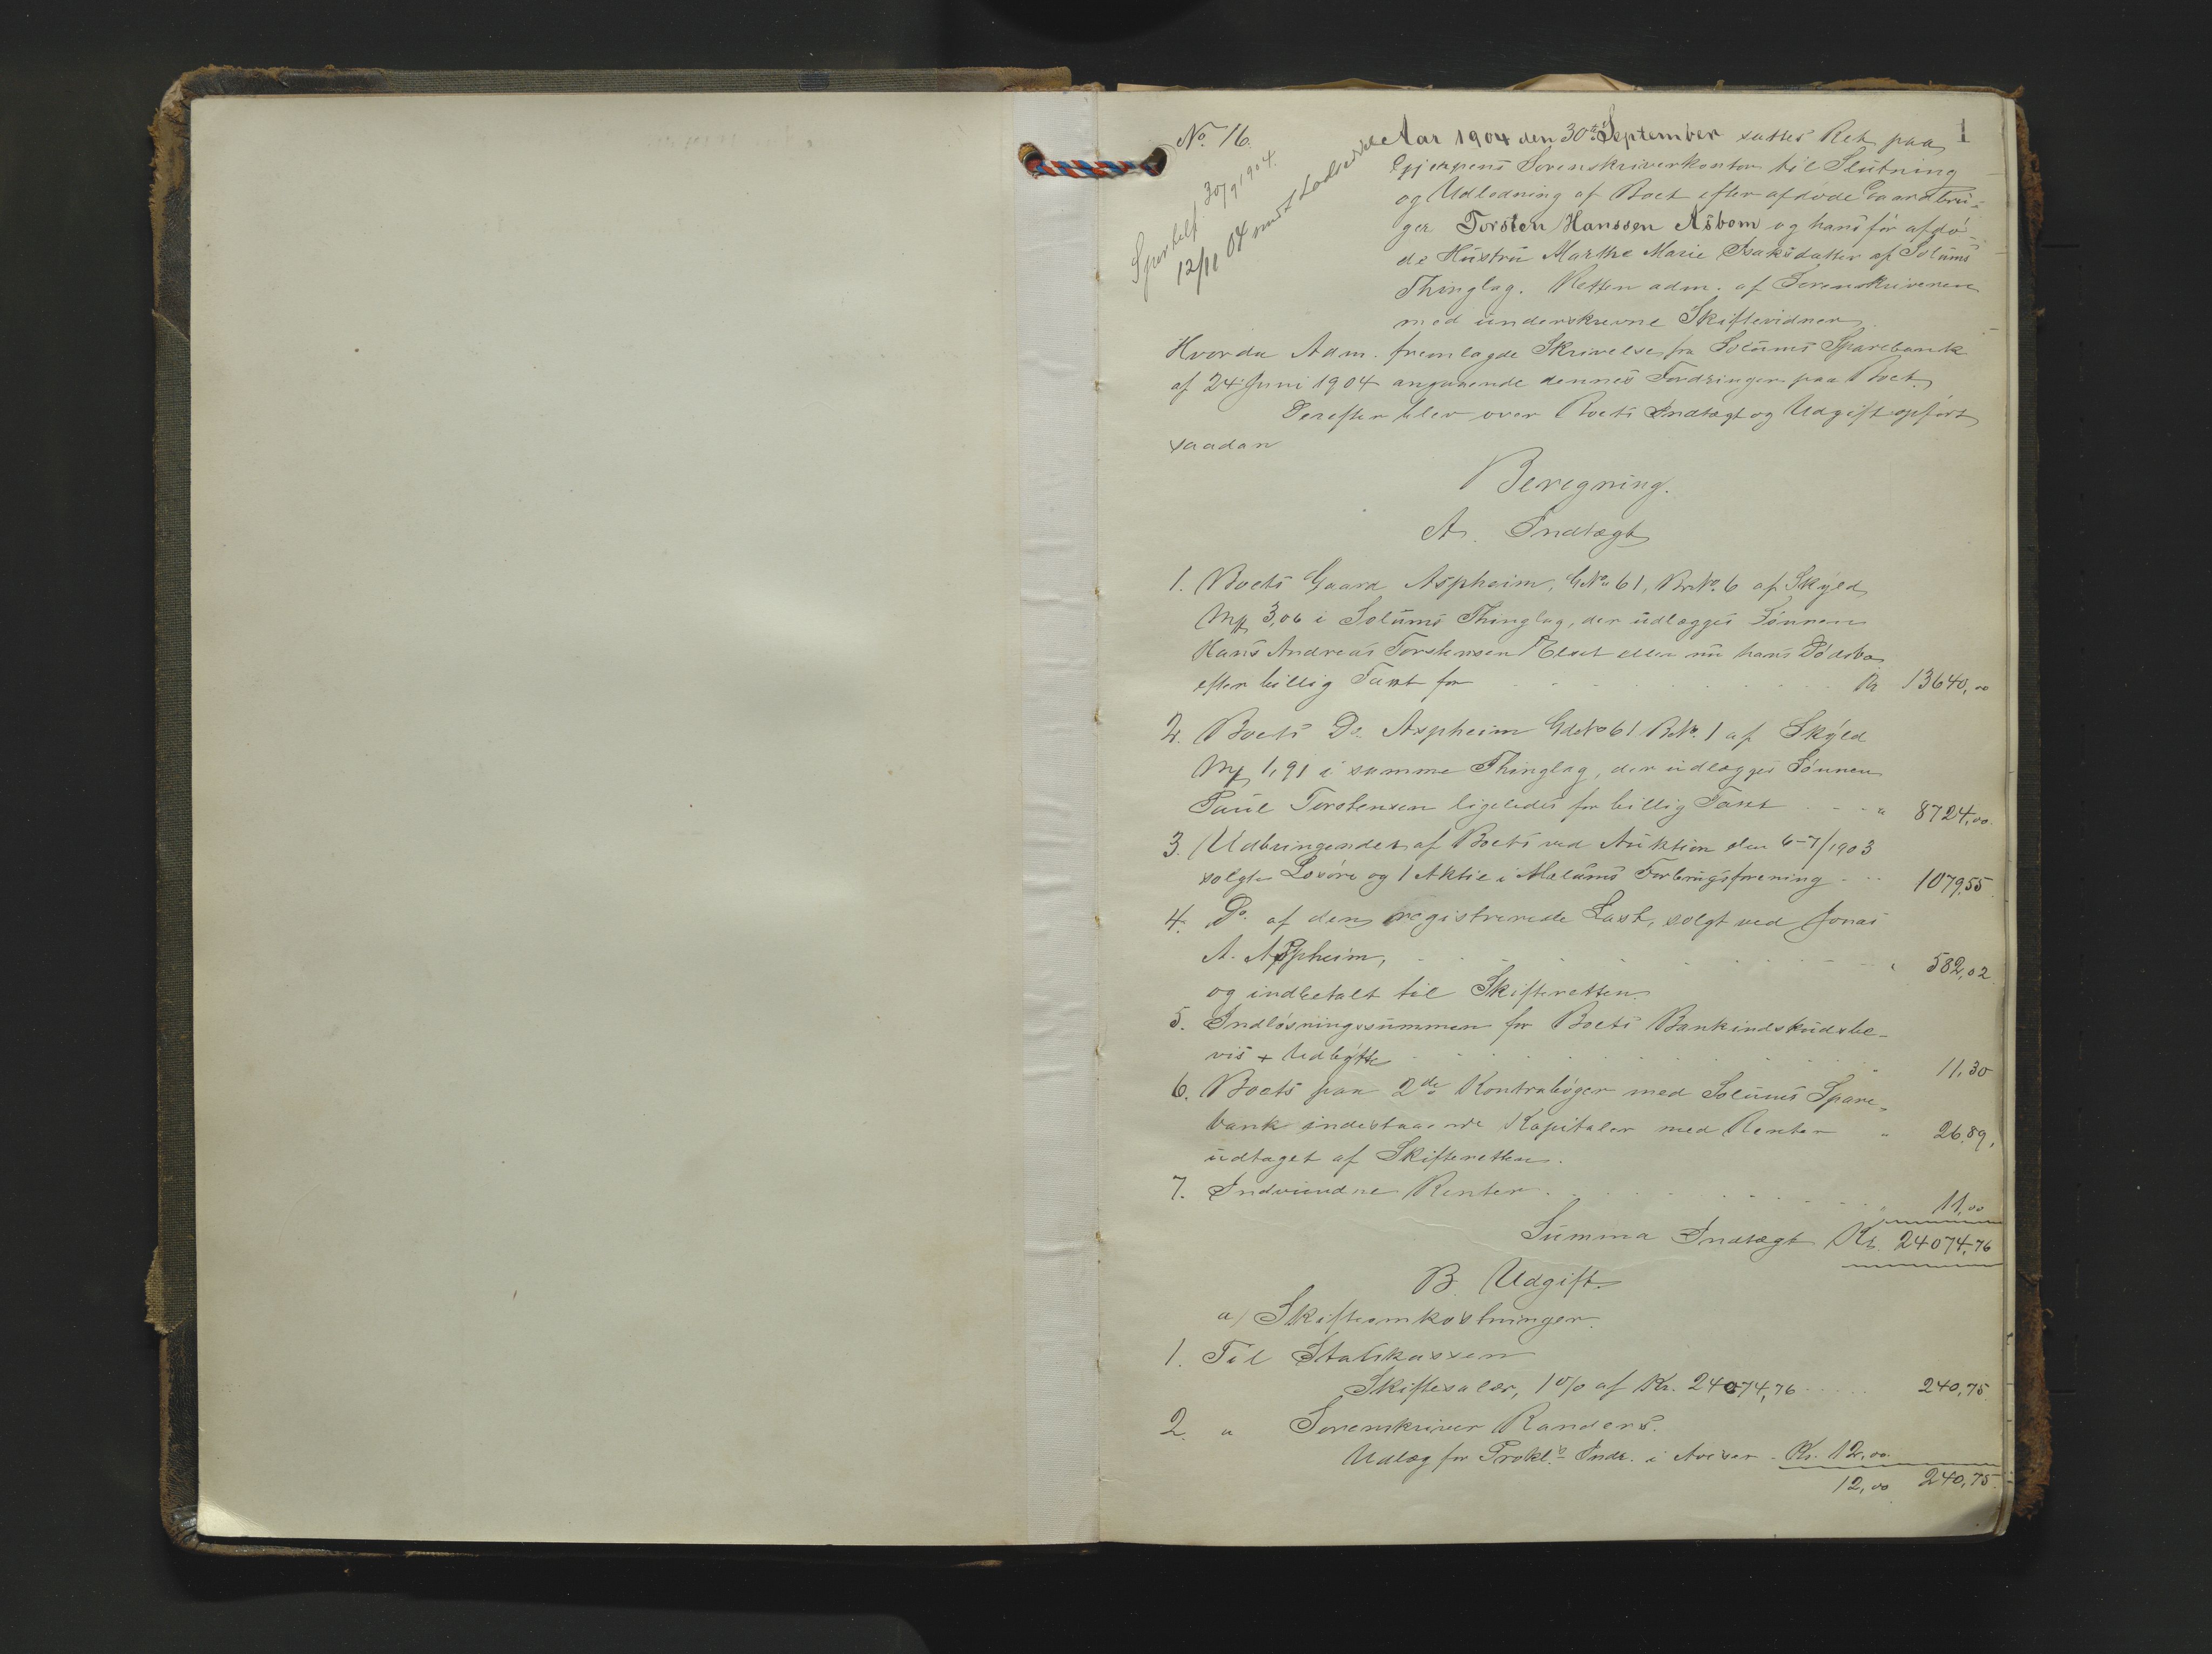 No 16.
1
30/9 1904.
12/11 04
Aar 1904 den 30te September sattes Ret paa
Gjerpens Sorenskriverkontor til Slutning
og Udlodning af Boet efter afdøde Gaardbru-
ger Torsten Hanssen Åsbom og hans før afdø-
de Hustru Marthe Marie Isaksdatter af Solums
Thinglag. Retten adm. af Sorenskriveren
med underskrevne Skiftevidner.
Hvorda Adm. fremlagde Skrivelse fra Solums Sparebank
af 24 Juni 1904 angaaende dennes Fordringer paa Boet.
Derefter blev over Boets Indtægt og Udgift opført
saadan
Beregning.
A. Indtægt
1. Boets Gaard Aspheim, GNo 61, BrNo. 6 af Skyld
Mk 3,06 i Solums Thinglag, der udlægges Sønnen
Hans Andreas Torstensen eller nu hans Dødsbo
efter billig Taxt for Kr 13640,00
2. Boets Do. Aspheim GdNo 61 BNo. 1 af Skyld
Mk 1,91 i samme Thinglag, der udlægges Sønnen
Paul Torstensen ligeledes for billig Taxt " 8724,00.
3. Udbringendet af Boets ved Auktion den 6-7/1903
solgte Løsøre og 1 Aktie i Melums Forbrugsforening 1079,55
4. Do. af den registrerede Last, solgt ved Jonas
A. Aspheim, " 582,02
og indbetalt til Skifteretten.
5. Indløsningssummen for Boets Bankindskudsbe-
vis + Udbytte " 11,30
6. Boets paa 2de Kontrabøger med Solums Spare-
bank indestaaende Kapitaler med Renter " 26,89,
udtaget af Skifteretten.
7. Indvundne Renter " 11,00
Summa Indtægt Kr. 24074,76
B. Udgift.
a/ Skifteomkostninger.
1. Til Statskassen
Skiftesalær, 1% af Kr. 24074,76 240,75
2. " Sorenskriver Randers.
Udlæg for Prokl.s Indr. i Aviser Kr. 12,00
12,00 240,75.